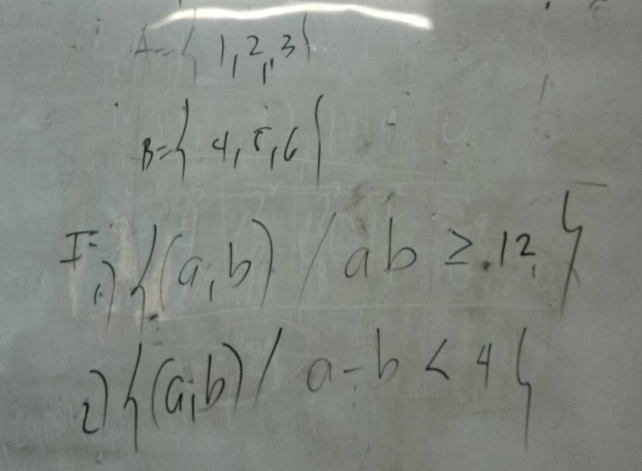 A={1,2,3}
B={4,5,6}
I=
1) {(a,b) / ab ≥ 12}
2) {(a,b) / a-b < 4}